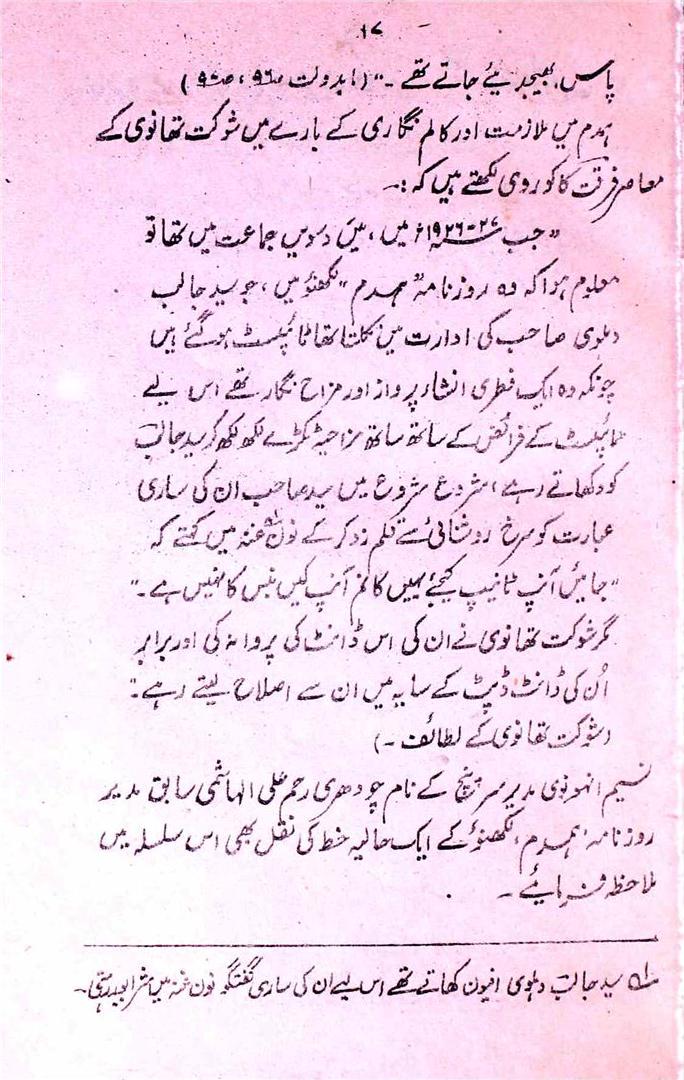 ۱۷
پاس بھیجدیئے جاتے تھے۔" (ابدولت ص۹۶، ص۹۷)
ہمدم میں ملازمت اور کالم نگاری کے بارے میں شوکت تھانوی کے
معاصر فرقت کاکوروی لکھتے ہیں کہ:۔
"جب ۲۷-۱۹۲۶ء میں، میں دسویں جماعت میں تھا تو
معلوم ہوا کہ وہ روزنامہ "ہمدم" لکھنؤ میں، جو سید جالب
دہلوی صاحب کی ادارت میں نکلتا تھا ٹائپسٹ ہو گئے ہیں
چونکہ وہ ایک فطری انشاء پرداز اور مزاح نگار تھے اس لیے
ٹائپسٹ کے فرائض کے ساتھ ساتھ مزاحیہ ٹکڑے لکھ لکھ کر سید جالب
کو دکھاتے رہے، شروع شروع میں سید صاحب ان کی ساری
عبارت کو سرخ روشنائی سے قلم زد کر کے نون غنہ میں کہتے کہ
"جائیں آنپ ٹانیپ کیجئے یہیں کالم آنپ کیں بنس کا نہیں ہے۔"
مگر شوکت تھانوی نے ان کی اس ڈانٹ کی پروا نہ کی اور برابر
اُن کی ڈانٹ ڈپٹ کے سایہ میں ان سے اصلاح لیتے رہے۔"
(شوکت تھانوی کے لطائف۔)
نسیم انہونوی مدیر سرپنچ کے نام چودھری رحم علی الہاشمی سابق مدیر
روزنامہ ہمدم، لکھنؤ کے ایک حالیہ خط کی نقل بھی اس سلسلہ میں
ملاحظہ فرمائیے۔
ل سید جالب دہلوی افیون کھاتے تھے اس لیے ان کی ساری گفتگو نون غنہ میں شرابور رہتی۔